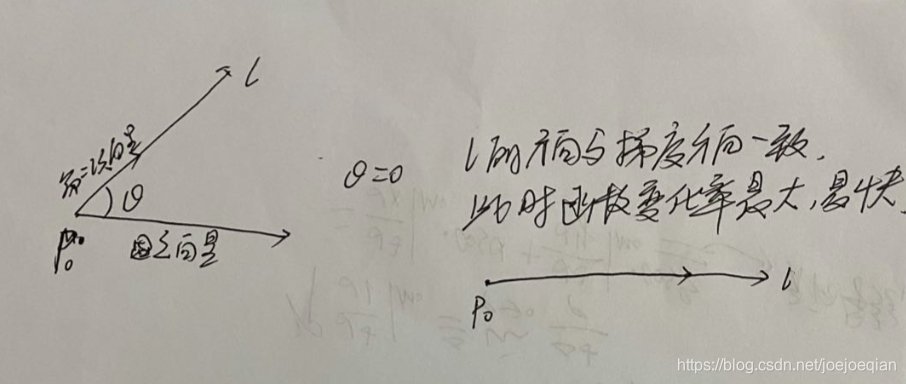 l
第二次向量
θ
P₀
固定向量
θ=0
l的方向与梯度方向一致,
此时函数变化率最大,最快
P₀
l
https://blog.csdn.net/joejoeqian